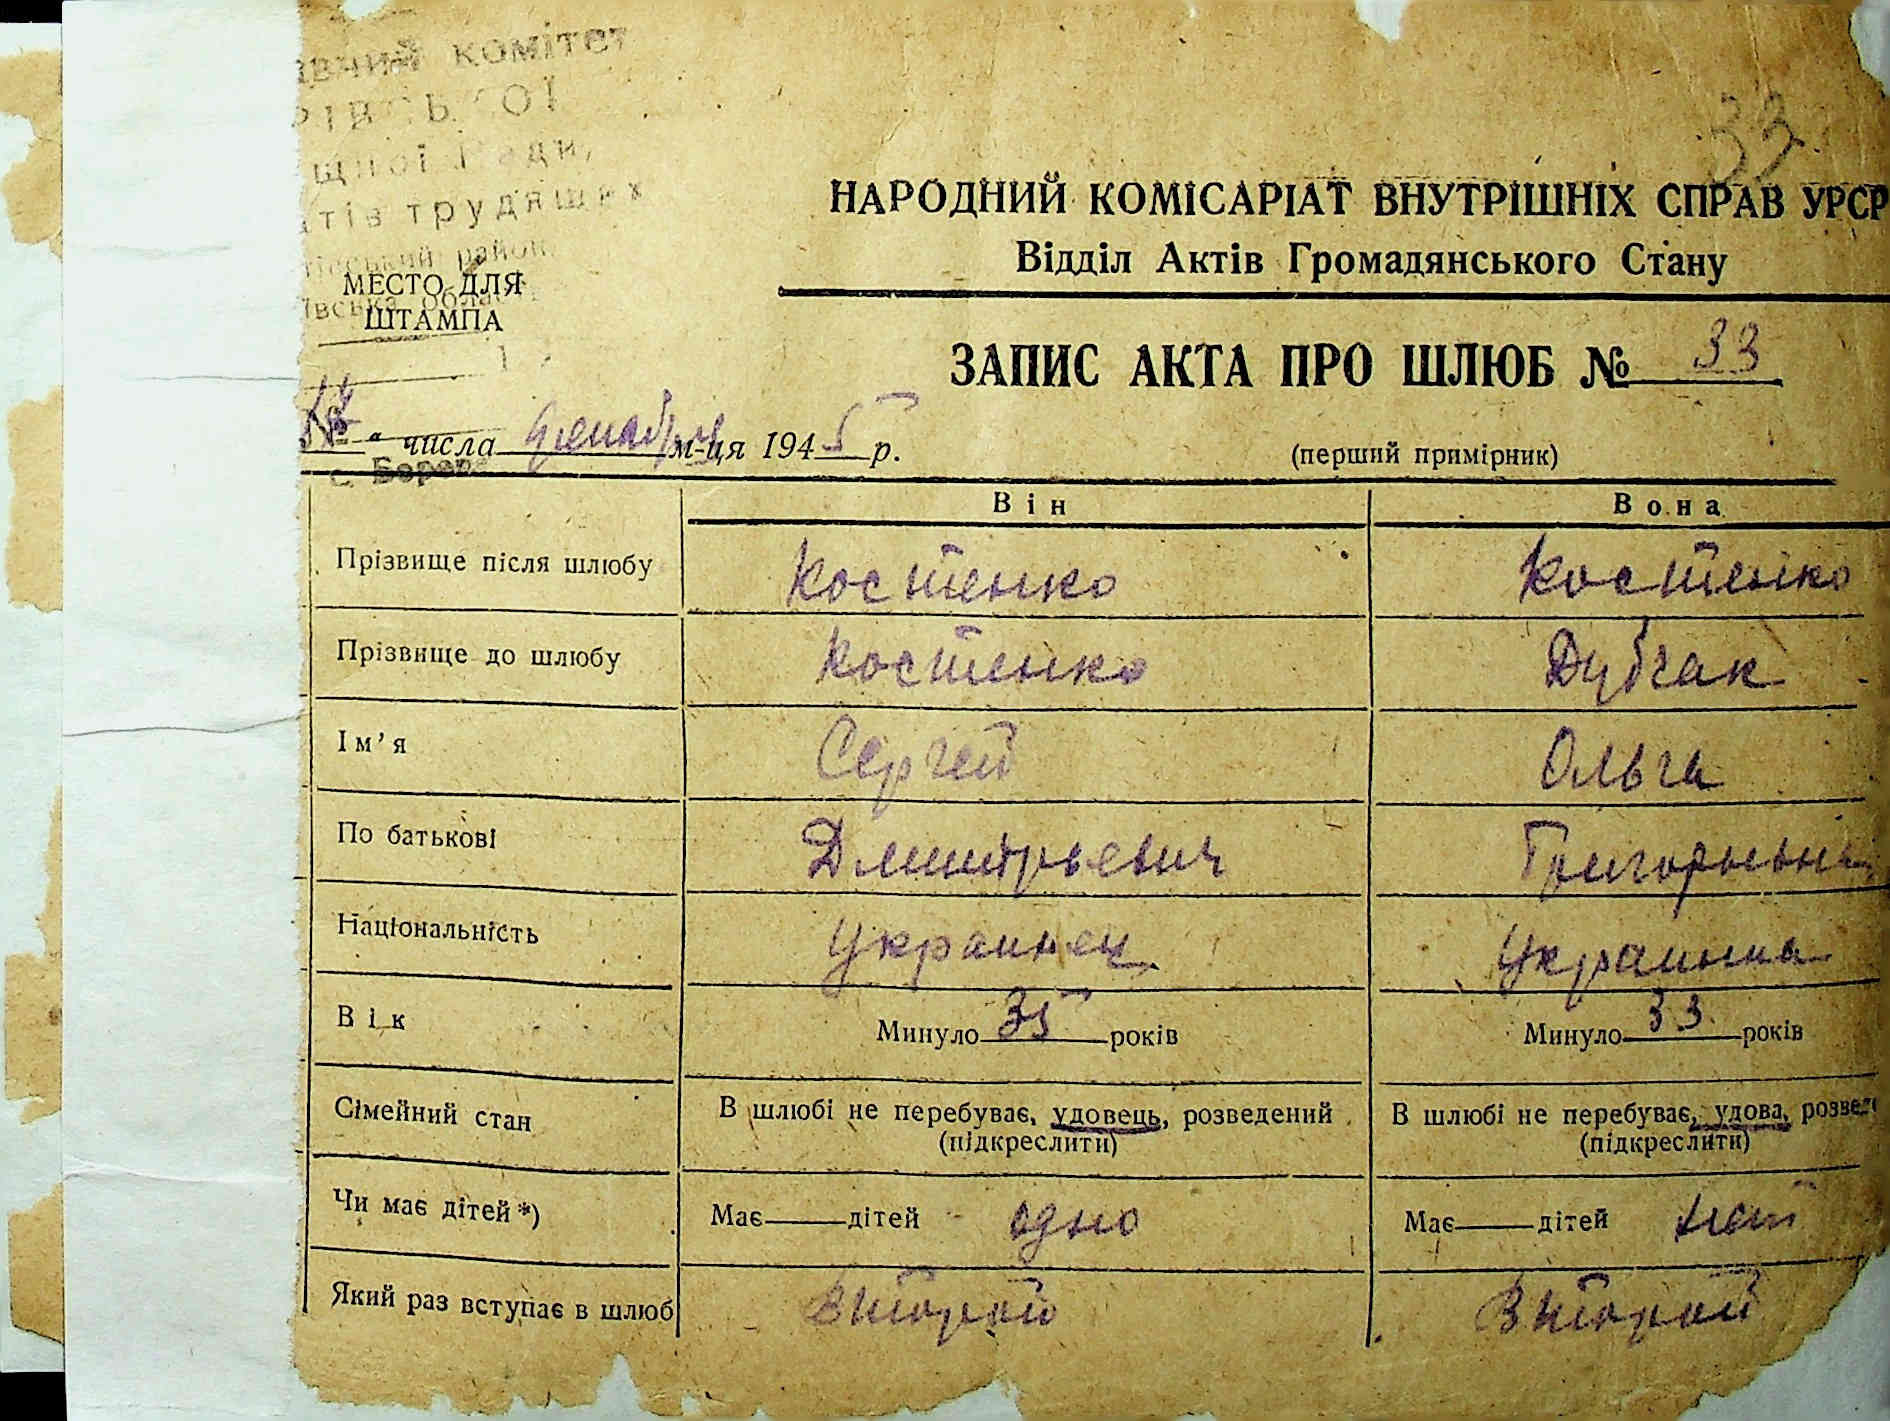 вчий комітет
щної Ради,
тів трудящих
район,
МЕСТО ДЛЯ
ШТАМПА
33
НАРОДНИЙ КОМІСАРІАТ ВНУТРІШНІХ СПРАВ УРСР
Відділ Актів Громадянського Стану
ЗАПИС АКТА ПРО ШЛЮБ № 33
" числа декабря м-ця 1945 р.
(перший примірник)
с. Борова
Він Вона
Прізвище після шлюбу Костенко Костенко
Прізвище до шлюбу Костенко Дубчак
Ім'я Сергей Ольга
По батькові Дмитрьевич Григорьевна
Національність Украинец Украинка
Вік Минуло 35 років Минуло 33 років
Сімейний стан В шлюбі не перебуває, удовець, розведений В шлюбі не перебуває, удова, розвед
(підкреслити) (підкреслити)
Чи має дітей *) Має дітей одно Має дітей нет
Який раз вступає в шлюб второй второй